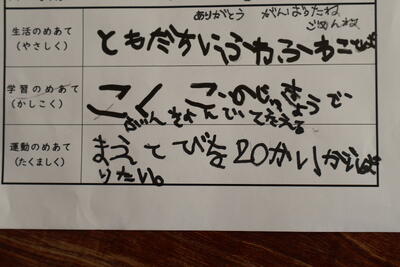 ありがとう がんばったね
ごめんね
生活のめあて
(やさしく)
ともだちにふわふわことば
学習のめあて
(かしこく)
こくごの
ぶんをよんでこたえる
運動のめあて
(たくましく)
まえてとびを20かいがんば
りたい。